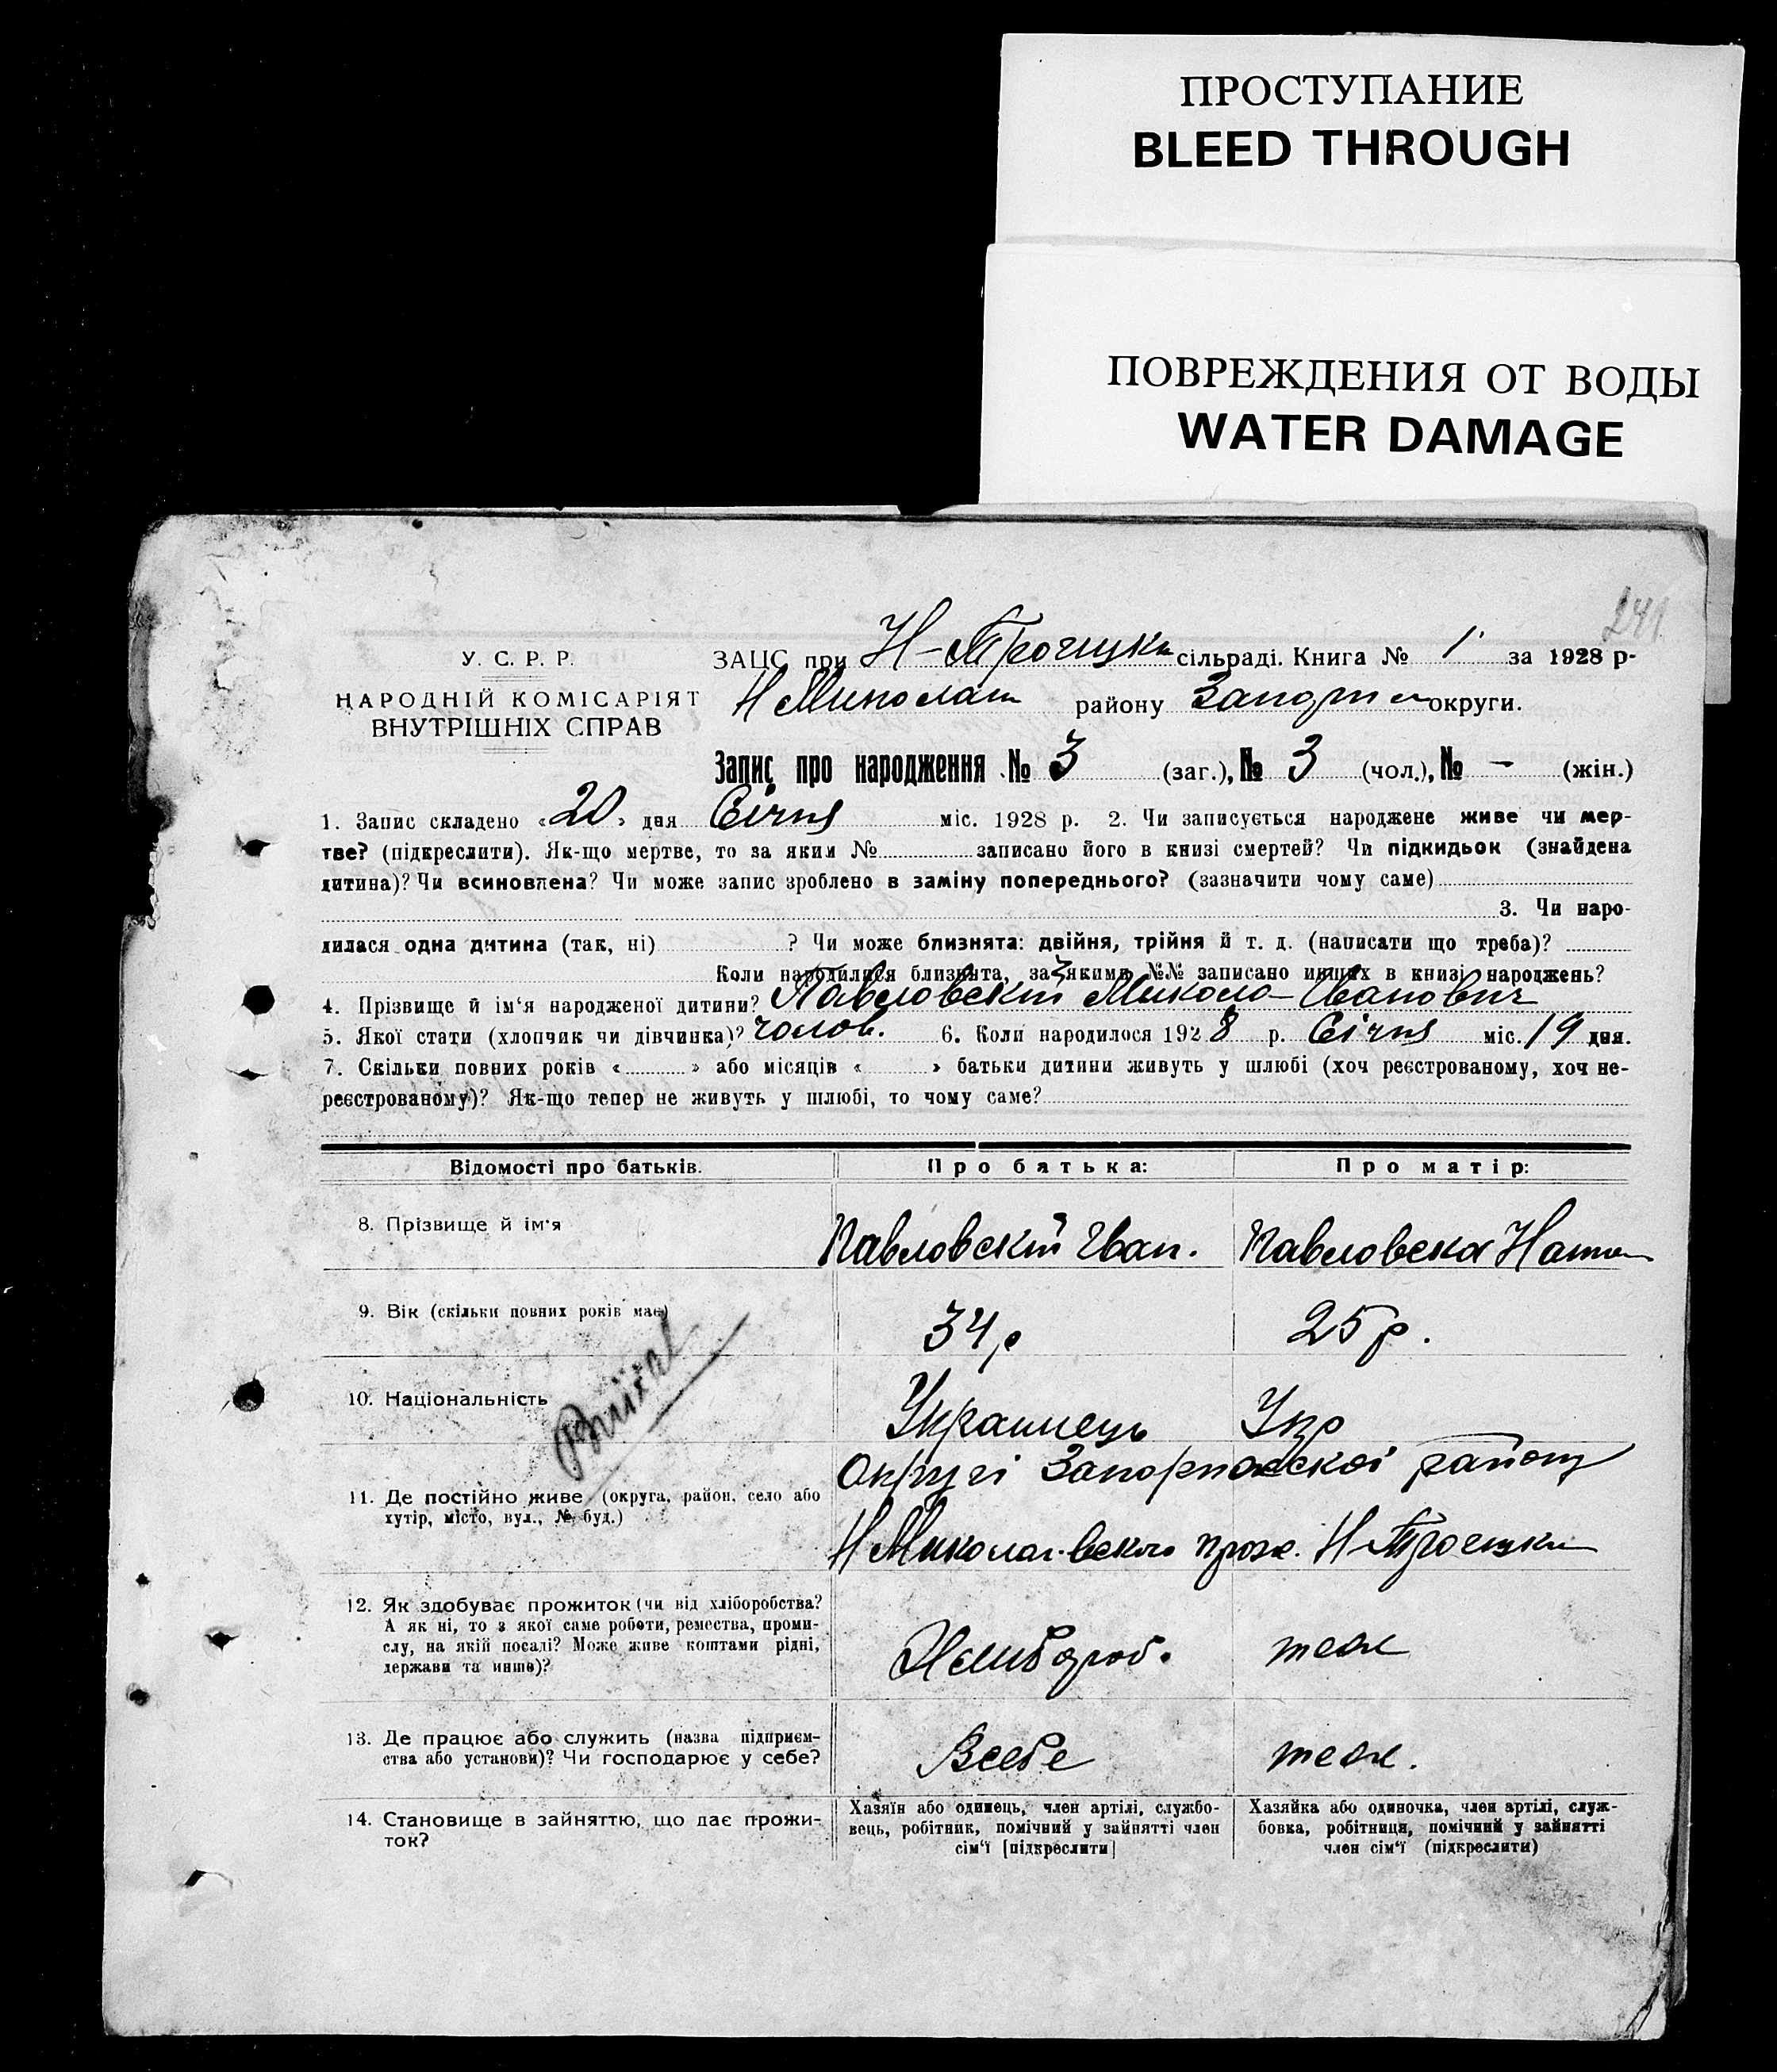 ПРОСТУПАНИЕ
BLEED THROUGH
ПОВРЕЖДЕНИЯ ОТ ВОДЫ
WATER DAMAGE
241
У. С. Р. Р.
НАРОДНІЙ КОМІСАРІЯТ
ВНУТРІШНІХ СПРАВ
ЗАЦС при Н-Троицки сільраді. Книга № 1 за 1928 р-
району округи.
Запис про народження № 3 (заг.), № 3 (чол.), № - (жін.)
1. Запис складено «20» дня Січня міс. 1928 р. 2. Чи записується народжене живе чи мер-
тве? (підкреслити). Як-що мертве, то за яким № записано його в книзі смертей? Чи підкидьок (знайдена
дитина)? Чи всиновлена? Чи може запис зроблено в заміну попереднього? (зазначити чому саме)
3. Чи наро-
дилася одна дитина (так, ні) ? Чи може близнята: двійня, трійня й т. д. (написати що треба)?
Коли народилися близнята, за якими №№ записано инших в книзі народжень?
4. Прізвище й ім'я народженої дитини? Павловский Микола Иванович
5. Якої стати (хлопчик чи дівчинка)? чолов. 6. Коли народилося 1928 р. Січня міс. 19 дня.
7. Скільки повних років « » або місяців « » батьки дитини живуть у шлюбі (хоч реєстрованому, хоч не-
реєстрованому)? Як-що тепер не живуть у шлюбі, то чому саме?
Відомості про батьків.
Про батька:
Про матір:
8. Прізвище й ім'я
Павловскій Иван.
Павловска
9. Вік (скільки повних років має)
34 р
25 р.
10. Національність
Украинець
Укр
11. Де постійно живе (округа, район, село або
хутір, місто, вул., № буд.)
Округі Запоржоскої району
Н Миколаівского прож. Н-Троицки
12. Як здобуває прожиток (чи від хліборобства?
А як ні, то з якої саме роботи, ремества, проми-
слу, на якій посаді? Може живе коштами рідні,
держави та инше)?
Хлибороб.
теж
13. Де працює або служить (назва підприєм-
ства або установи)? Чи господарює у себе?
Всебе
теж.
14. Становище в зайняттю, що дає прожи-
ток?
Хазяїн або одинець, член артілі, службо-
вець, робітник, помічний у зайнятті член
сім'ї [підкреслити]
Хазяйка або одиночка, член артілі, служ-
бовка, робітниця, помічний у зайнятті
член сім'ї (підкреслити)